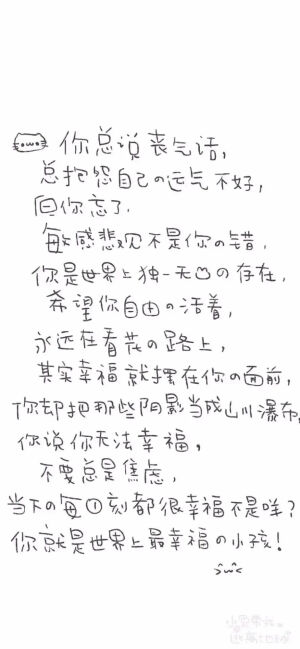 你总说丧气话，
总抱怨自己の运气不好，
但你忘了，
敏感悲观不是你の错，
你是世界上独一无二の存在，
希望你自由の活着，
永远在看花の路上，
其实幸福就摆在你の面前，
你却把那些阴影当成山川瀑布，
你说你无法幸福，
不要总是焦虑，
当下の每①刻都很幸福不是咩？
你就是世界上最幸福の小孩！